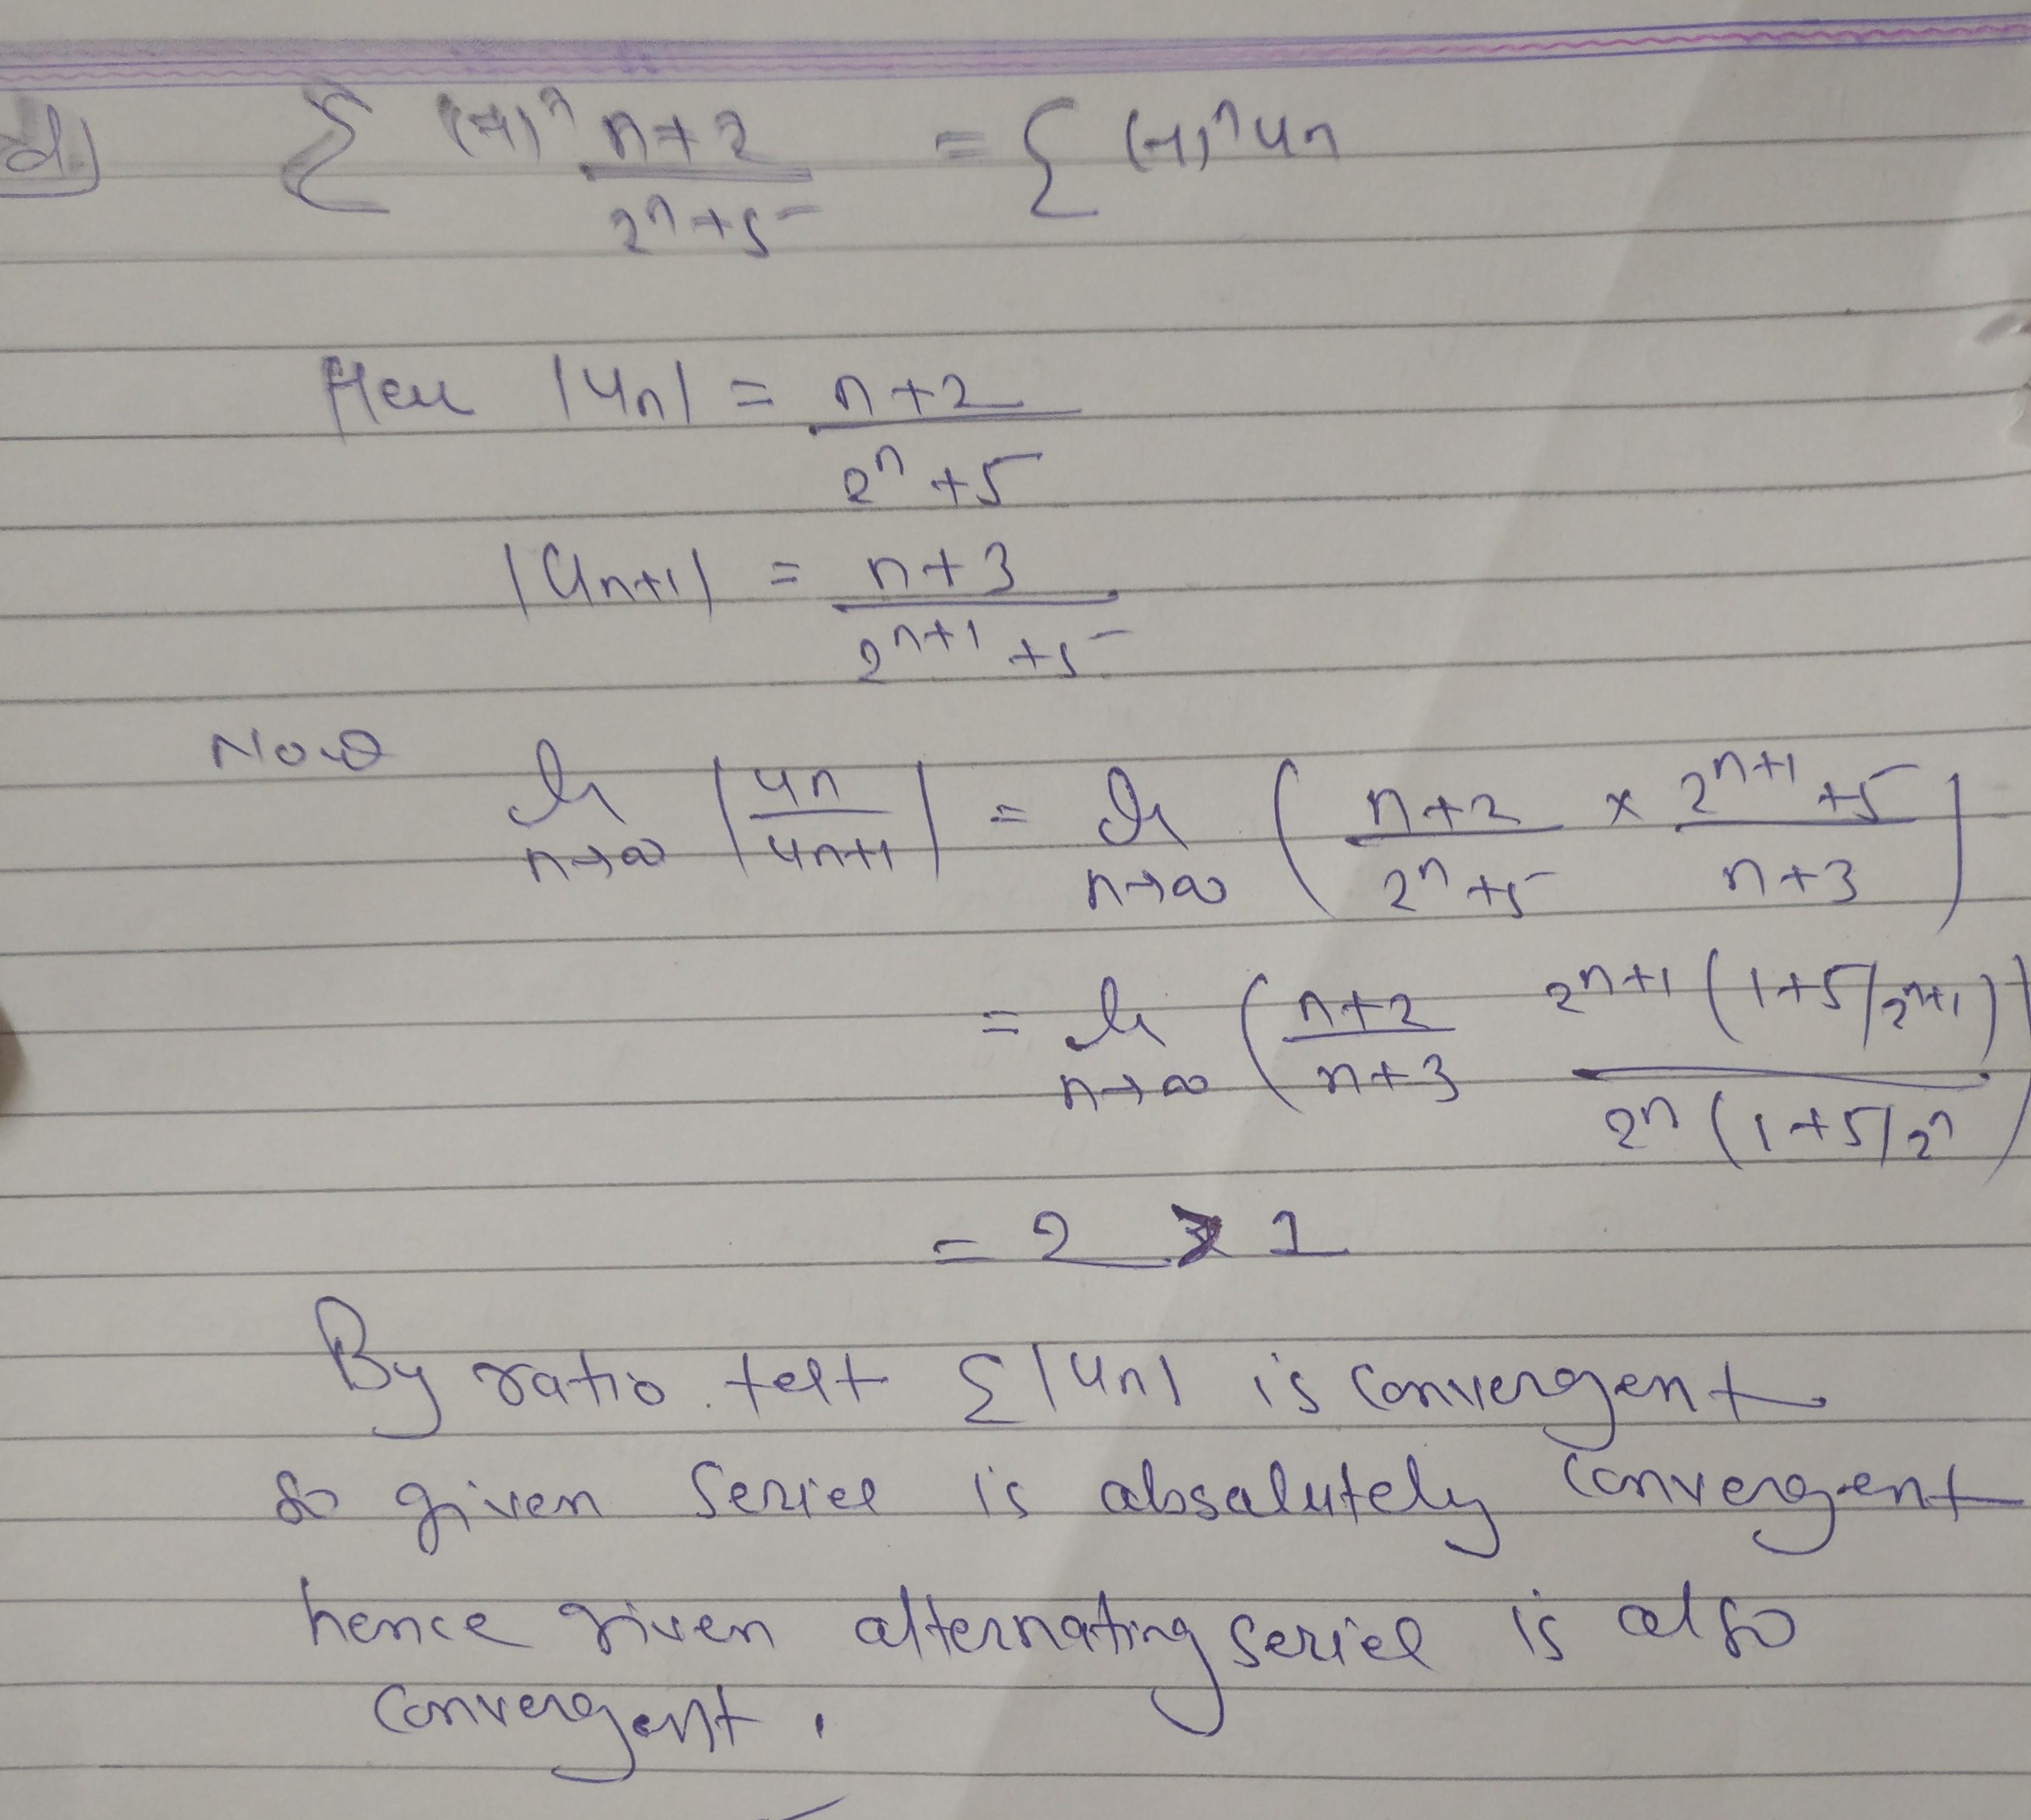 d) Σ (-1)^n (n+2)/(2^n+5) = Σ (-1)^n u_n
Here |u_n| = (n+2)/(2^n+5)
|u_{n+1}| = (n+3)/(2^{n+1}+5)
Now lt_{n→∞} |u_n/u_{n+1}| = lt_{n→∞} ( (n+2)/(2^n+5) × (2^{n+1}+5)/(n+3) )
= lt_{n→∞} ( (n+2)/(n+3) 2^{n+1}(1+5/2^{n+1})/2^n(1+5/2^n )
= 2 > 1
By ratio test Σ|u_n| is convergent
so given series is absalutely convergent
hence given alternating series is also
convergent.